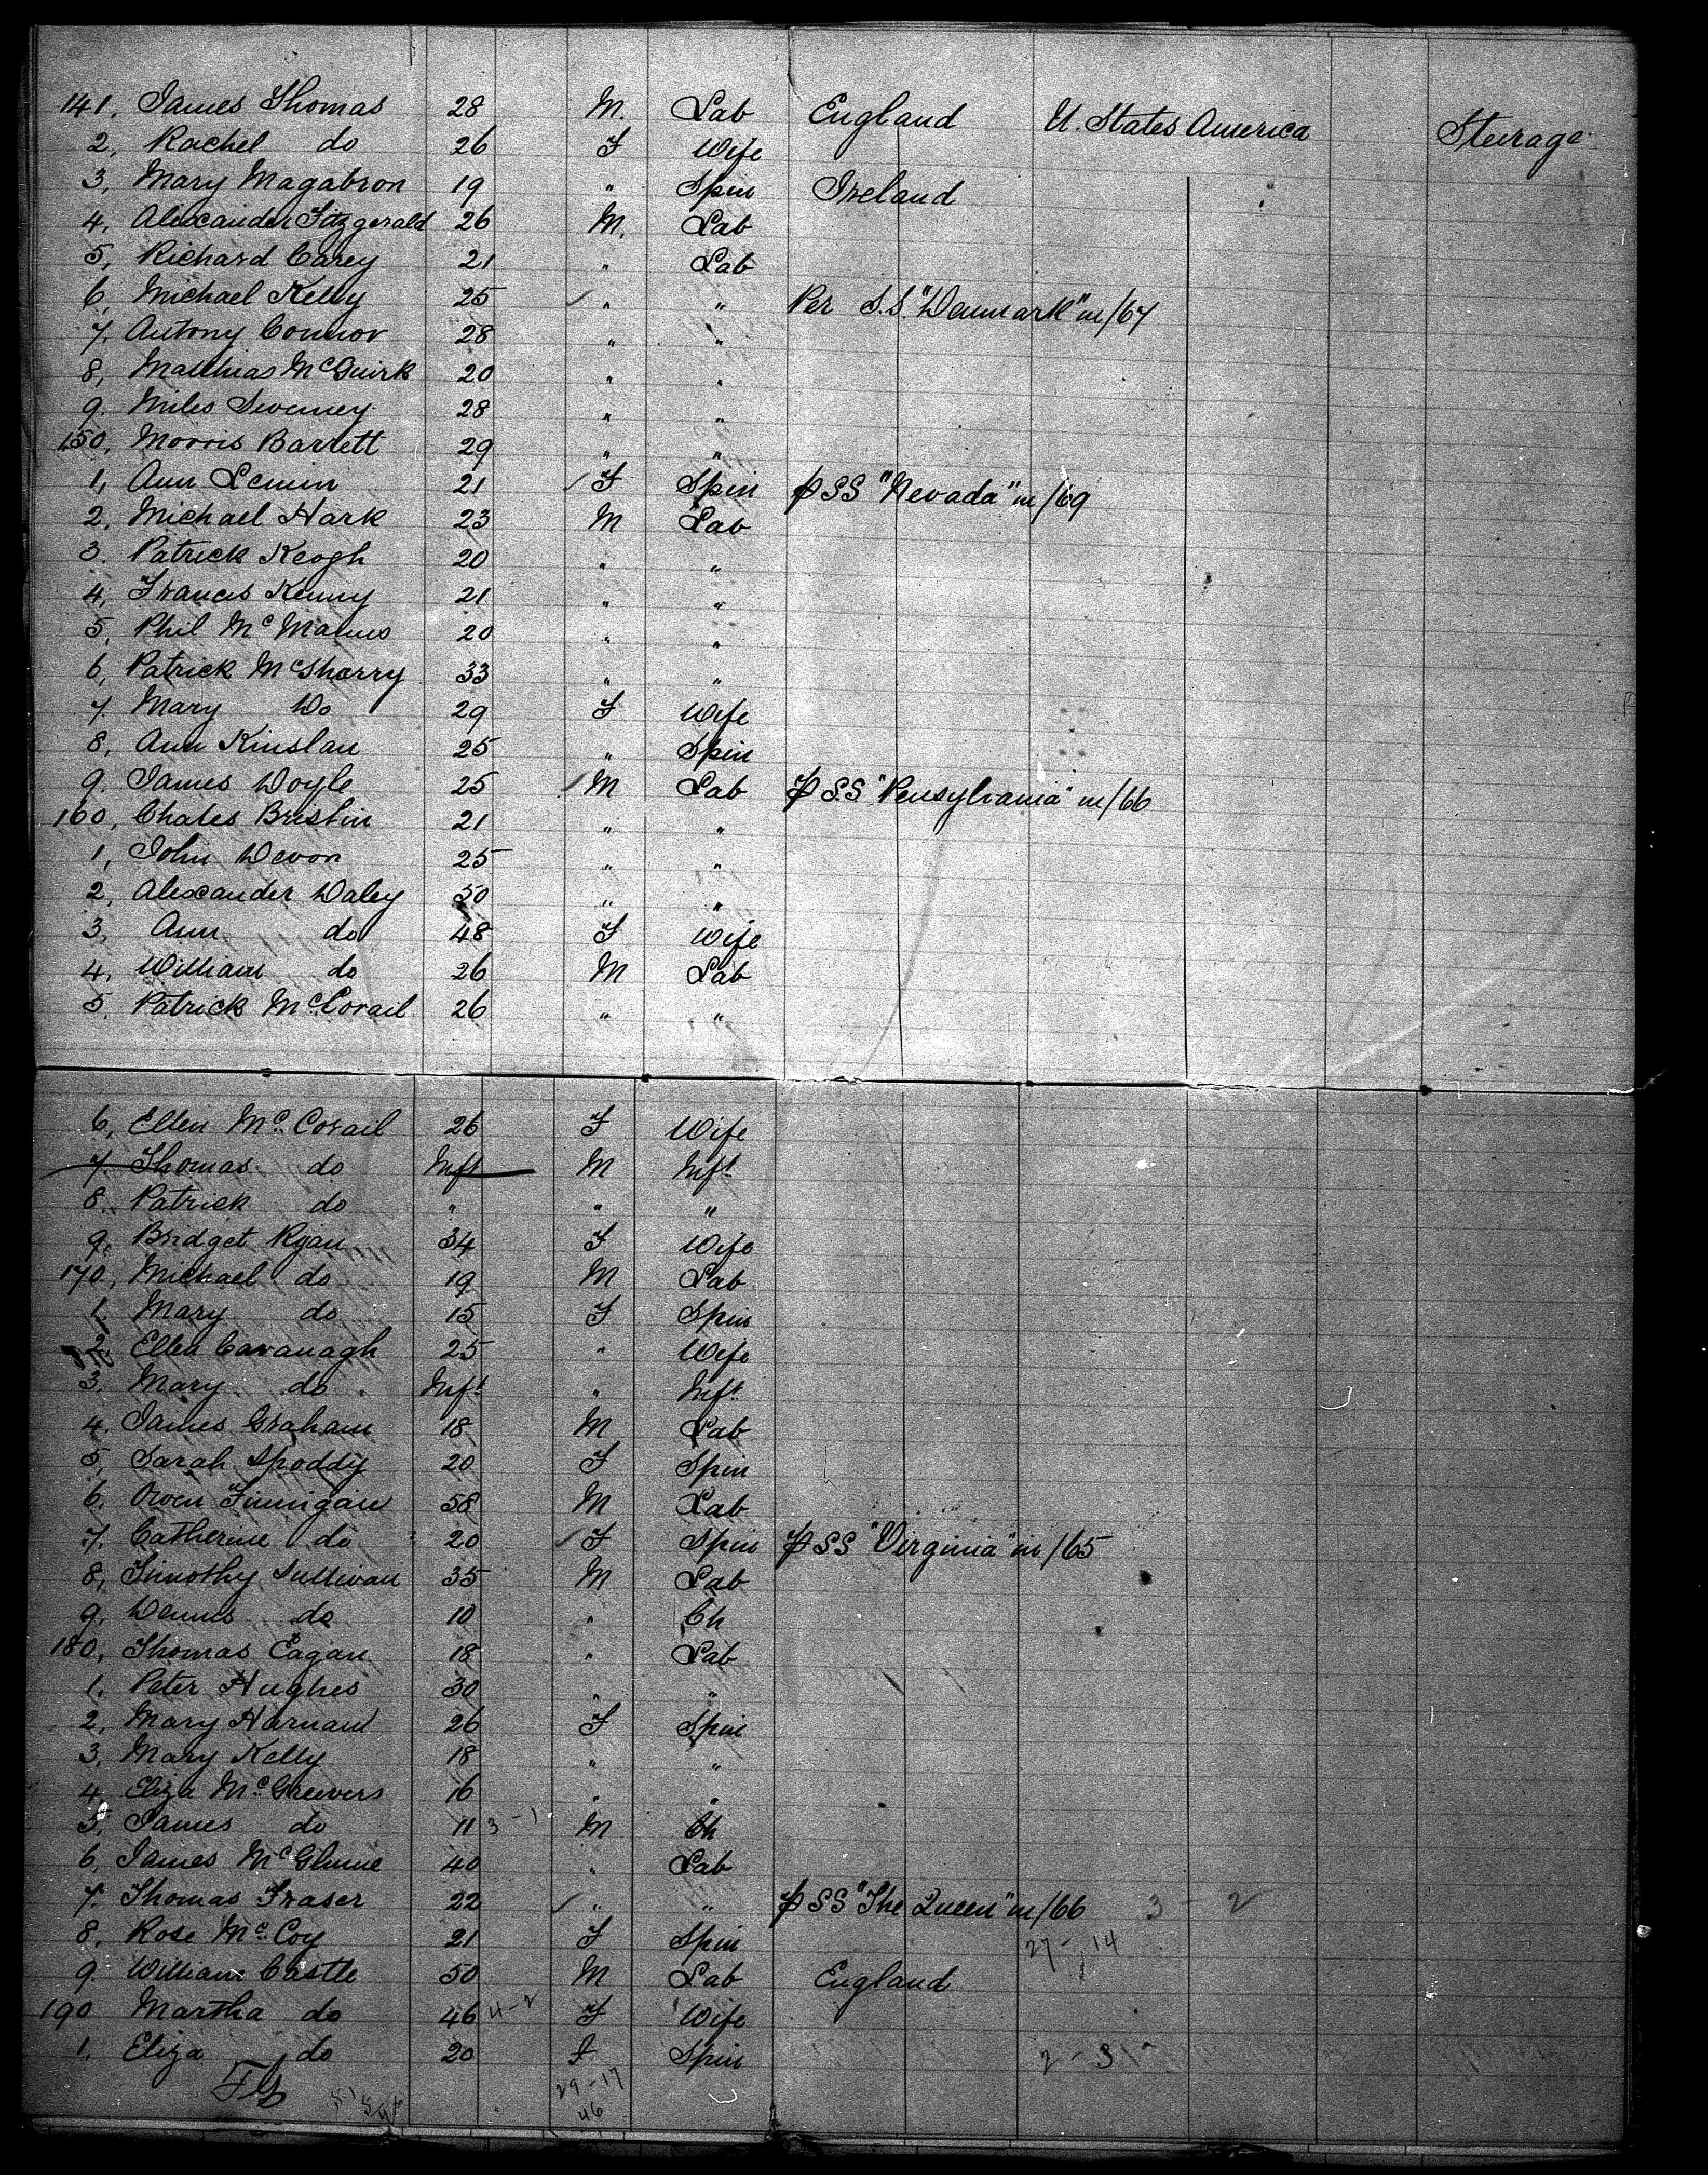 141, James Thomas 28 M. Lab England U. States America Steerage
2, Rachel do 26 F Wife
3, Mary Magabron 19 " Spin Ireland "
4, Alexander Fitzgerald 26 M. Lab
5, Richard Carey 21 " Lab
6, Michael Kelly 25 ✓ " " Per S.S. "Denmark" in/67
7, Antony Connor 28 " "
8, Matthias McGuirk 20 " "
9. Miles Sweeney 28 " "
150, Morris Barrett 29 " "
1, Ann 21 ✓ F Spin p SS "Nevada" in/69
2, Michael Hark 23 M Lab
3. Patrick Keogh 20 " "
4, Francis Kenny 21 " "
5, Phil McManus 20 " "
6, Patrick McSharry 33 " "
7. Mary Do 29 F Wife
8, Ann Kinslau 25 " Spin
9. James Doyle 25 ✓ M Lab p S.S. "Pensylvania" in/66
160, Chales Brislin 21 " "
1, John Devon 25 " "
2, Alexander Daley 50 " "
3, Ann do 48 F Wife
4, William do 26 M Lab
5. Patrick McCorail 26 " "
6, Ellen Mc.Corail 26 F Wife
7. Thomas do Inft M Inft
8. Patrick do " " "
9. Bridget Ryan 34 F Wife
170, Michael do 19 M Lab
1. Mary do 15 F Spin
2. Ellen Cavanagh 25 " Wife
3. Mary do Inft " Inft
4. James Graham 18 M Lab
5, Sarah Shoddy 20 F Spin
6. Owen Finnigan 58 M Lab
7. Catherine do 20 ✓ F Spin p SS "Virginia" in/65
8, Timothy Sullivan 35 M Lab
9. Dennis do 10 " Ch
180, Thomas Eagan 18 " Lab
1. Peter Hughes 30 " "
2, Mary Harnan 26 F Spin
3, Mary Kelly 18 " "
4, Eliza Mc.Greevers 16 " "
5, James do 11 3-1 M Ch
6, James McGlume 40 " Lab
7. Thomas Fraser 22 ✓ " " p SS "The Queen" in/66 3 - 2
8. Rose Mc.Coy 21 F Spin 27 - 14
9. William Castle 50 M Lab England
190 Martha do 46 4-2 F Wife
1. Eliza do 20 F Spin 2 - 3
29-17
46